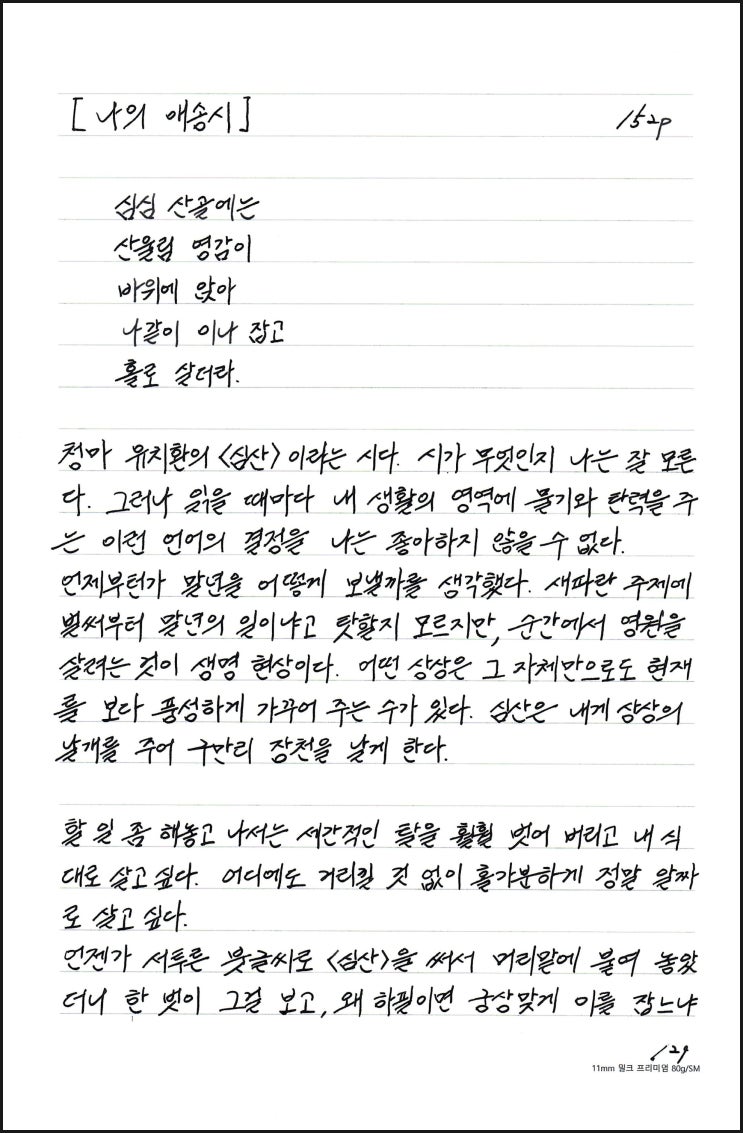 [나의 애송시] 152p
심심 산골에는
산울림 영감이
바위에 앉아
나같이 이나 잡고
홀로 살더라.
청마 유치환의 <심산> 이라는 시다. 시가 무엇인지 나는 잘 모른
다. 그러나 읽을 때마다 내 생활의 영역에 물기와 탄력을 주
는 이런 언어의 결정을 나는 좋아하지 않을 수 없다.
언제부턴가 말년을 어떻게 보낼까를 생각했다. 새파란 주제에
벌써부터 말년의 일이냐고 탓할지 모르지만, 순간에서 영원을
살려는 것이 생명 현상이다. 어떤 상상은 그 자체만으로도 현재
를 보다 풍성하게 가꾸어 주는 수가 있다. 심산은 내게 상상의
날개를 주어 구만리 장천을 날게 한다.
할 일 좀 해놓고 나서는 세간적인 탈을 훨훨 벗어 버리고 내 식
대로 살고 싶다. 어디에도 거리낄 것 없이 홀가분하게 정말 알짜
로 살고 싶다.
언젠가 서투른 붓글씨로 <심산>을 써서 머리맡에 붙여 놓았
더니 한 벗이 그걸 보고, 왜 하필이면 궁상맞게 이를 잡느냐
129
11mm 밀크 프리미엄 80g/SM